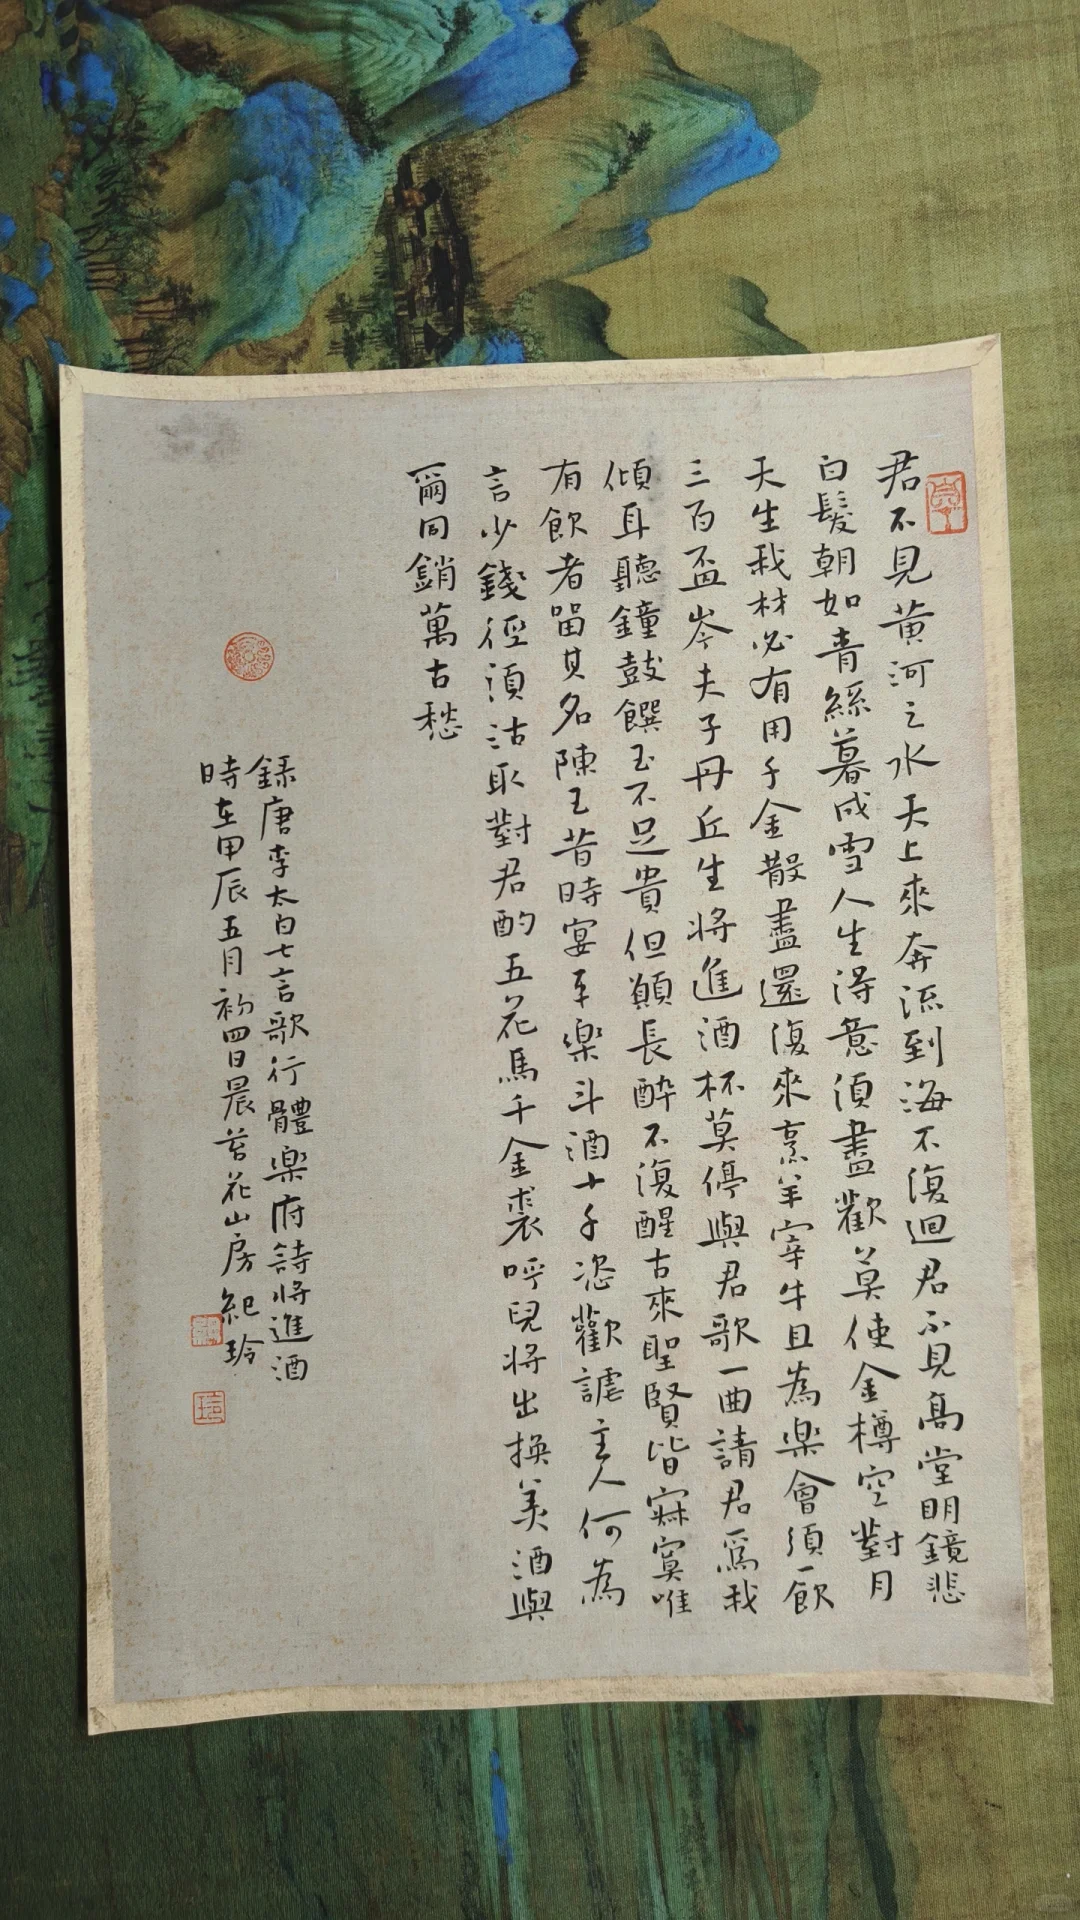 君不見黃河之水天上來奔流到海不復迴君不見高堂明鏡悲
白髮朝如青絲暮成雪人生得意須盡歡莫使金樽空對月
天生我材必有用千金散盡還復來烹羊宰牛且為樂會須一飲
三百盃岑夫子丹丘生將進酒杯莫停與君歌一曲請君爲我
傾耳聽鐘鼓饌玉不足貴但願長醉不復醒古來聖賢皆寂寞唯
有飲者留其名陳王昔時宴平樂斗酒十千恣歡謔主人何為
言少錢徑須沽取對君酌五花馬千金裘呼兒將出換美酒與
爾同銷萬古愁
錄唐李太白七言歌行體樂府詩將進酒
時在甲辰五月初四日晨苔花山房紀玲